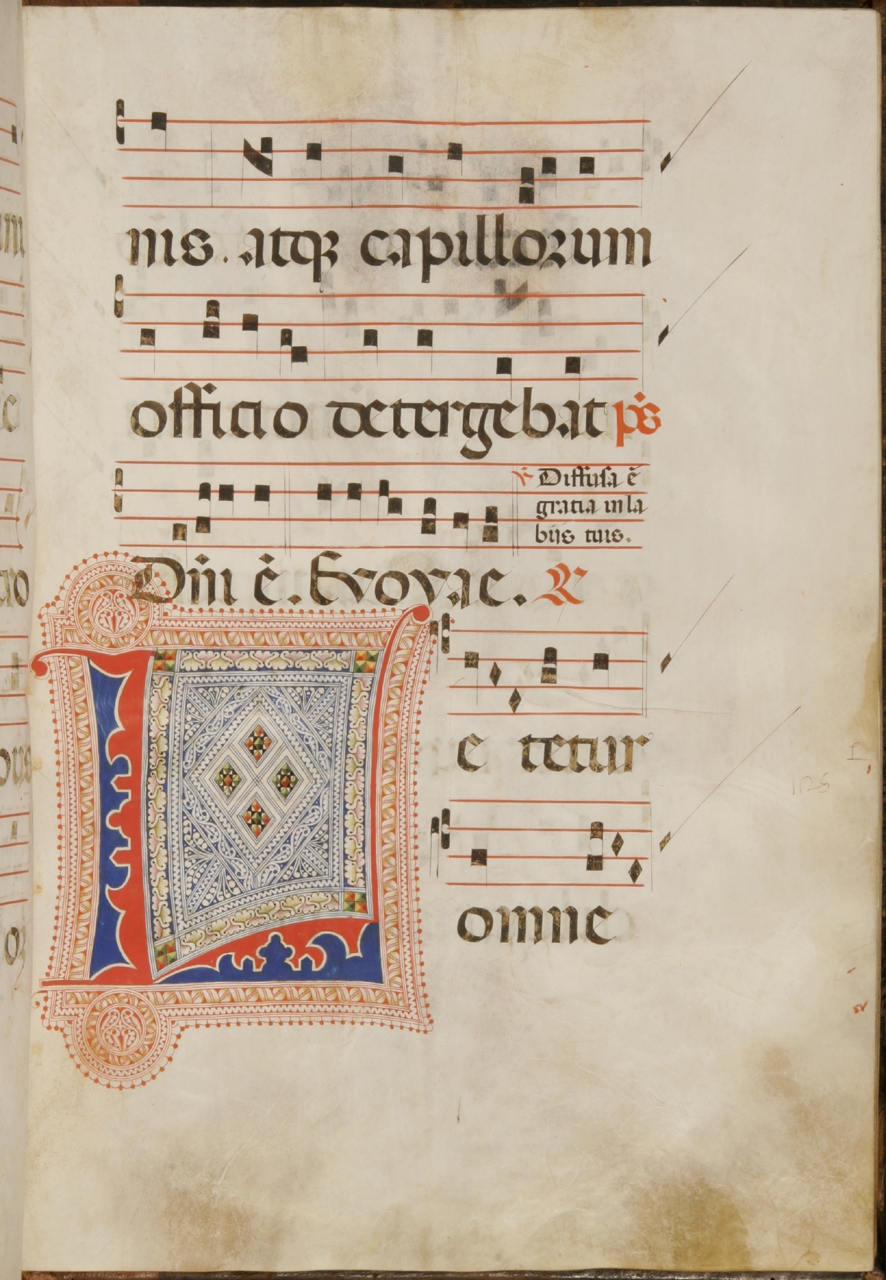 nis. atqꝫ capillorum
officio detergebat p̄s
Diffusa ē
gratia in la
biis tuis.
Dñi ē. Evovae. R
L
e tetur
omne